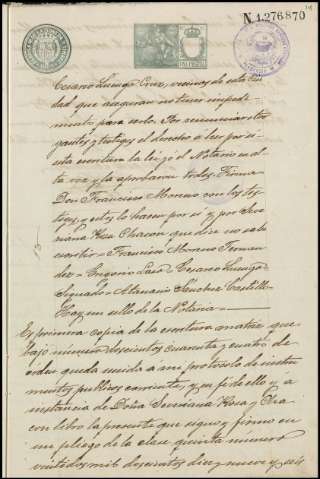 N.1.276.870
Cesareo Luengo Cruz, vecinos de esta Ciu
dad que aseguran no tener impedi
mento para serlo. Por renunciar otor
gantes y testigos el derecho a leer por sí
esta escritura la leo yo el Notario en al
ta voz y la aprobaron todos. Firma
Don Francisco Moreno con los tes
tigos, y estos lo hacen por sí y por Ser
mana Rosa Chacon que dice no sabe
escribir - Francisco Moreno Fernan
dez - Eugenio Lasa - Cesareo Luengo
Signado - Atanasio Sanchez Castillo
Hay un sello de la Notaria
Es primera copia de la escritura matriz que
bajo número doscientos cuarenta y cuatro de
órden queda unida a mi protocolo de instru
mentos publicos corriente, y en fe de ello y a
instancia de Doña Rosa y
con libro la presente que signo y firmo en
un pliego de la clase quinta número
mil doscientos diez y nueve y seis